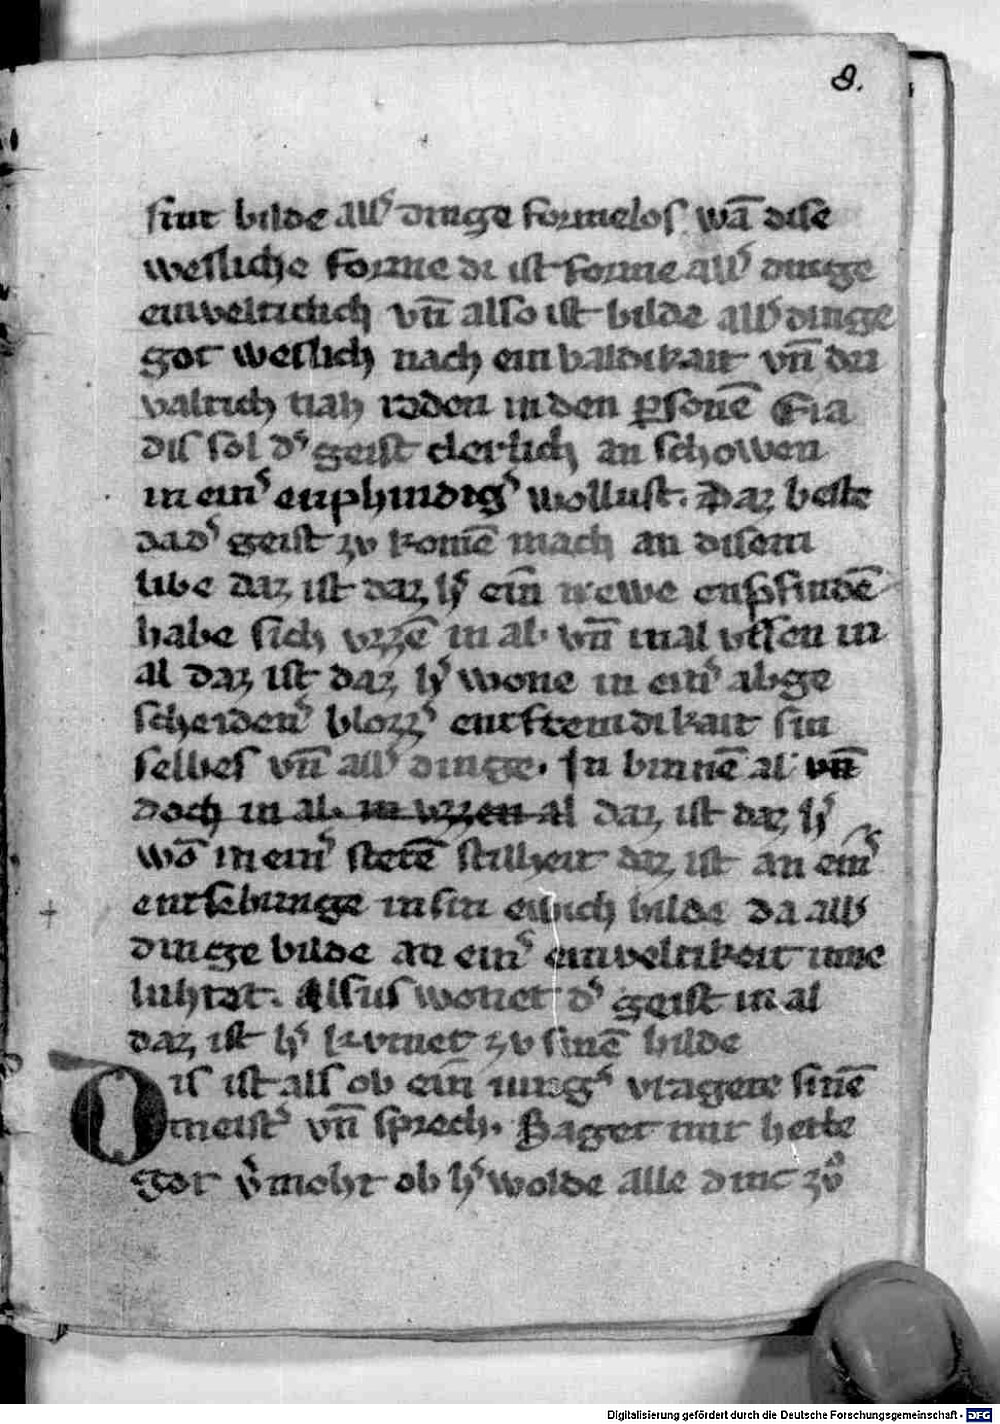 8.
sint bilde allˢ dinge formelos wā dise
wesliche forme di ist forme allˢ dinge
einveltichlich vn̄ also ist bilde allˢ dinge
got weslich nach ein valdikait vn̄ dri
valtich nah reden in den ꝑsonē Eia
dis sol dˢ geist clerlich an schowen
in einˢ enphindigˢ wollust. Daz beste
da dˢ geist zv komē mach an disem
libe daz ist daz hˢ ein̄ enpfindē
habe sich vzzē in al. vn̄ in al vssen in
al daz ist daz hˢ wone in einˢ abge
scheidenˢ blozzˢ entfremdikait sin
selbes vn̄ allˢ dinge. In binnē al vn̄
doch in al. in vzzen al daz ist daz hˢ
wō in einˢ stetē stillheit daz ist an einˢ
entsebunge in sin ewich bilde da allˢ
dinge bilde an einˢ einveltikeit inne
luhtet. Alsus wonet dˢ geist in al
daz ist hˢ kvmet zv sinē bilde
Dis ist als ob ein̄ iungˢ vragete sinē
meistˢ vn̄ sprach. Saget mir hette
got vˢmoht ob hˢ wolde alle dinc zvͦ
Digitalisierung gefördert durch die Deutsche Forschungsgemeinschaft - DFG